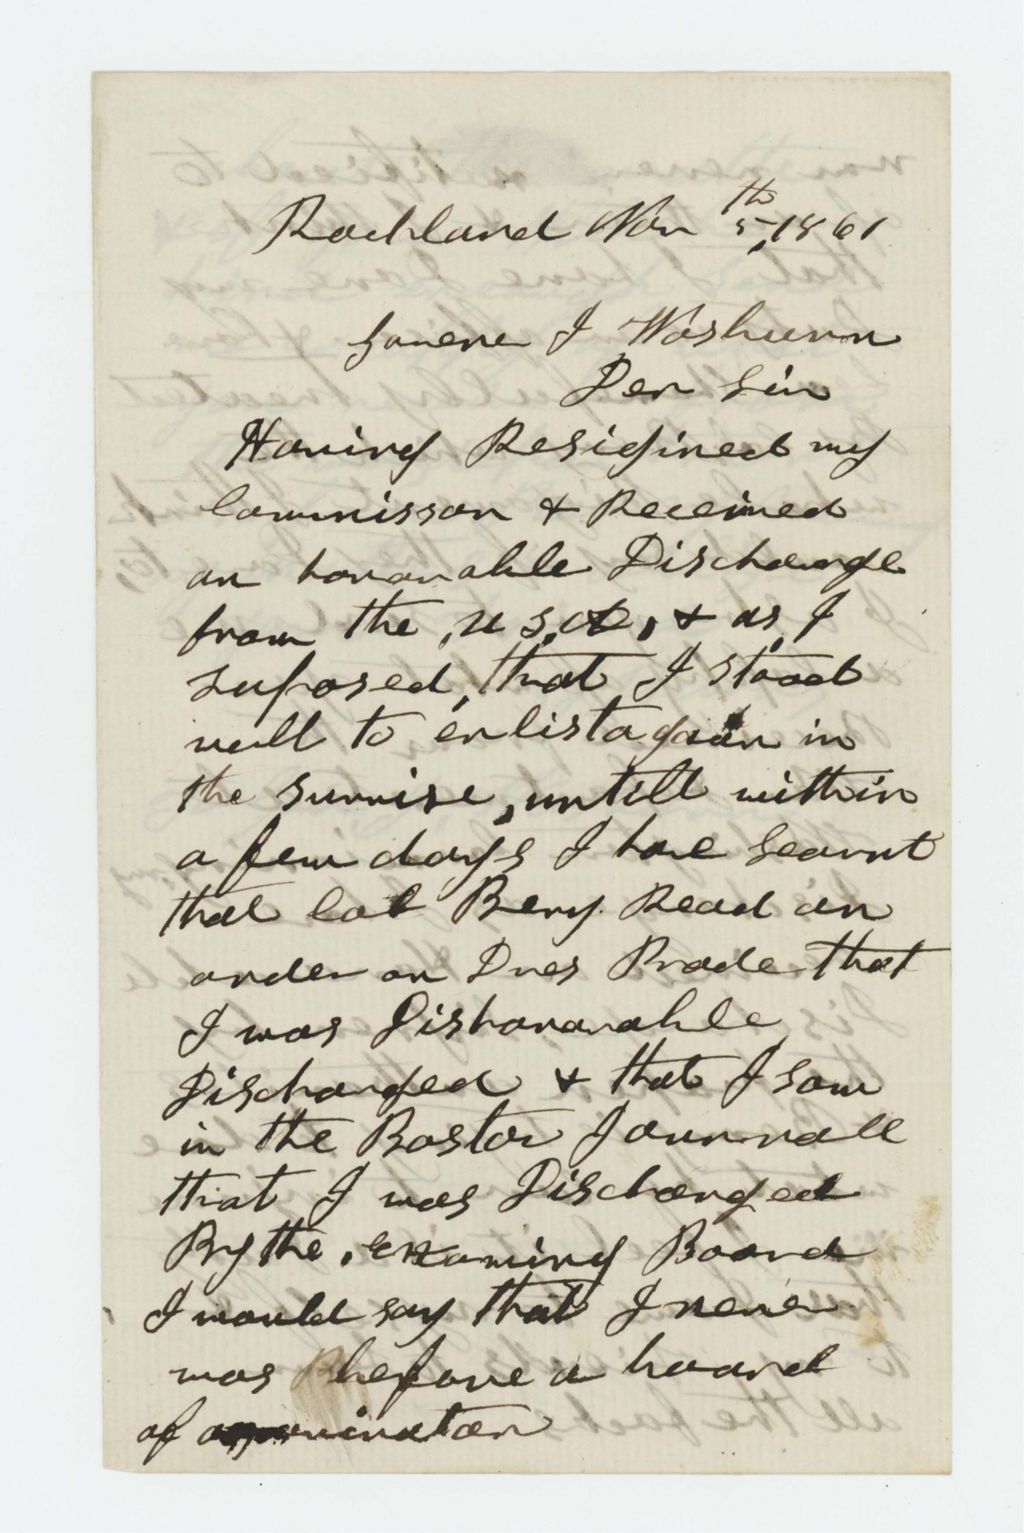 Rockland Nov 5th, 1861
Goverer I Washburn
Der Sir
Having Resigined my
Commisson & Received
an honorable Discharge
from the, U S, A, & as, I
suposed, that I stood
well to enlist again in
the Survise, untill within
a few days I have Learnt
that Col Bery Read an
order on Dres Prade that
I was Dishonorable
Discharged & that I saw
in the Boston Journall
that I was Discharged
By the, Examing Board
I would say that I never
was before a board
of